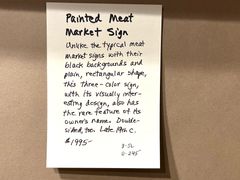 Painted Meat
Market Sign
Unlike the typical meat
market signs with their
black backgrounds and
plain, rectangular shape,
this three-color sign,
with its visually inter-
esting design, also has
the rare feature of its
owner's name. Double-
sided, too. Late 19th C.
$1995-